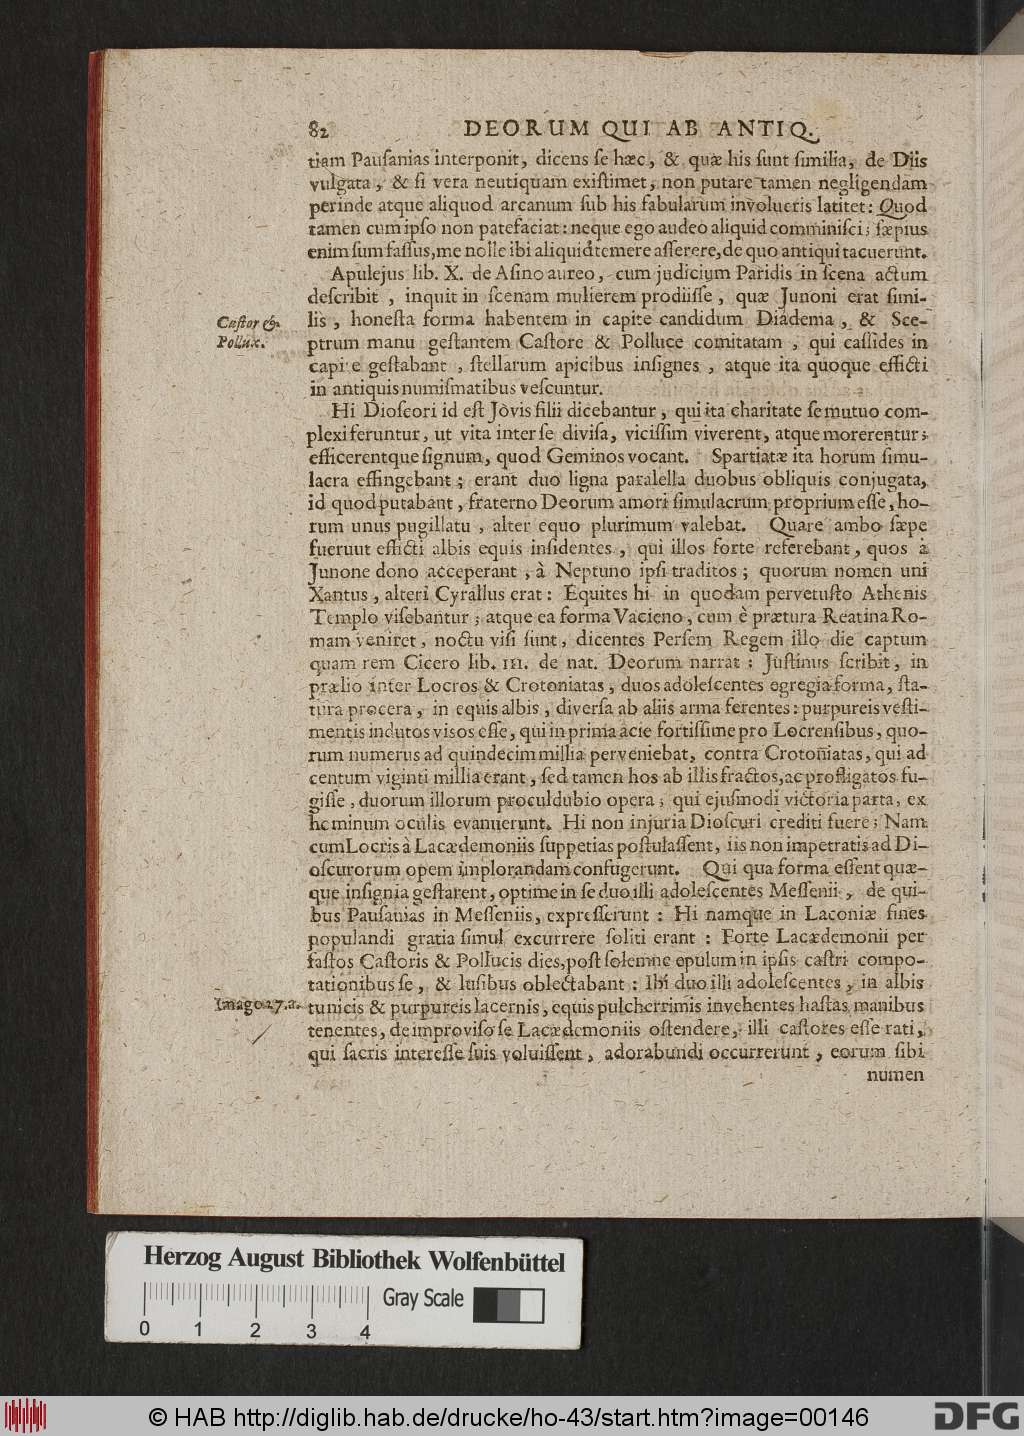 82 DEORUM QUI AB ANTIQ.
tiam Pauſanias interponit, dicens ſe hæc, & quæ his ſunt ſimilia, de Diis
vulgata, & ſi vera neutiquam exiſtimet, non putare tamen negligendam
perinde atque aliquod arcanum ſub his fabularum involucris latitet: Quod
tamen cum ipſo non patefaciat: neque ego audeo aliquid comminiſci; ſæpius
enim ſum faſſus, me nolle ibi aliquid temere aſſerere, de quo antiqui tacuerunt.
Apulejus lib. X. de Aſino aureo, cum judicium Paridis in ſcena actum
deſcribit, inquit in ſcenam mulierem prodiiſſe, quæ Junoni erat ſimi-
Caſtor &
Pollux.
lis, honeſta forma habentem in capite candidum Diadema, & Sce-
ptrum manu geſtantem Caſtore & Polluce comitatam, qui caſſides in
capite geſtabant, ſtellarum apicibus inſignes, atque ita quoque efficti
in antiquis numiſmatibus veſcuntur.
Hi Dioſcori id eſt Jovis filii dicebantur, qui ita charitate ſe mutuo com-
plexi feruntur, ut vita inter ſe diviſa, viciſſim viverent, atque morerentur;
efficerentque ſignum, quod Geminos vocant. Spartiatæ ita horum ſimu-
lacra effingebant; erant duo ligna paralella duobus obliquis conjugata,
id quod putabant, fraterno Deorum amori ſimulacrum proprium eſſe, ho-
rum unus pugillatu, alter equo plurimum valebat. Quare ambo ſæpe
fueruut efficti albis equis inſidentes, qui illos forte referebant, quos à
Junone dono acceperant, à Neptuno ipſi traditos; quorum nomen uni
Xantus, alteri Cyrallus erat: Equites hi in quodam pervetuſto Athenis
Templo viſebantur; atque ea forma Vacieno, cum è prætura Reatina Ro-
mam veniret, noctu viſi ſunt, dicentes Perſem Regem illo die captum
quam rem Cicero lib. III. de nat. Deorum narrat: Juſtinus ſcribit, in
prælio inter Locros & Crotoniatas, duos adoleſcentes egregia forma, ſta-
tura procera, in equis albis, diverſa ab aliis arma ferentes: purpureis veſti-
mentis indutos viſos eſſe, qui in prima acie fortiſſime pro Locrenſibus, quo-
rum numerus ad quindecim millia perveniebat, contra Crotoniatas, qui ad
centum viginti millia erant, ſed tamen hos ab illis fractos, ac profligatos fu-
giſſe, duorum illorum proculdubio opera; qui ejuſmodi victoria parta, ex
hominum oculis evanuerunt. Hi non injuria Dioſcuri crediti fuere; Nam
cum Locris à Lacædemoniis ſuppetias poſtulaſſent, iis non impetratis ad Di-
oſcurorum opem implorandam confugerunt. Qui qua forma eſſent quæ-
que inſignia geſtarent, optime in ſe duo illi adoleſcentes Meſſenii, de qui-
bus Pauſanias in Meſſeniis, expreſſerunt: Hi namque in Laconiæ fines
populandi gratia ſimul excurrere ſoliti erant: Forte Lacædemonii per
faſtos Caſtoris & Pollucis dies, poſt ſolemne epulum in ipſis caſtri compo-
tationibus ſe, & luſibus oblectabant: Ibi duo illi adoleſcentes, in albis
Imago 27.a.
tunicis & purpureis lacernis, equis pulcherrimis invehentes haſtas manibus
tenentes, de improviſo ſe Lacædemoniis oſtendere, illi caſtores eſſe rati,
qui ſacris intereſſe ſuis voluiſſent, adorabundi occurrerunt, eorum ſibi
numen
Herzog August Bibliothek Wolfenbüttel
Gray Scale
0 1 2 3 4
© HAB http://diglib.hab.de/drucke/ho-43/start.htm?image=00146
DFG